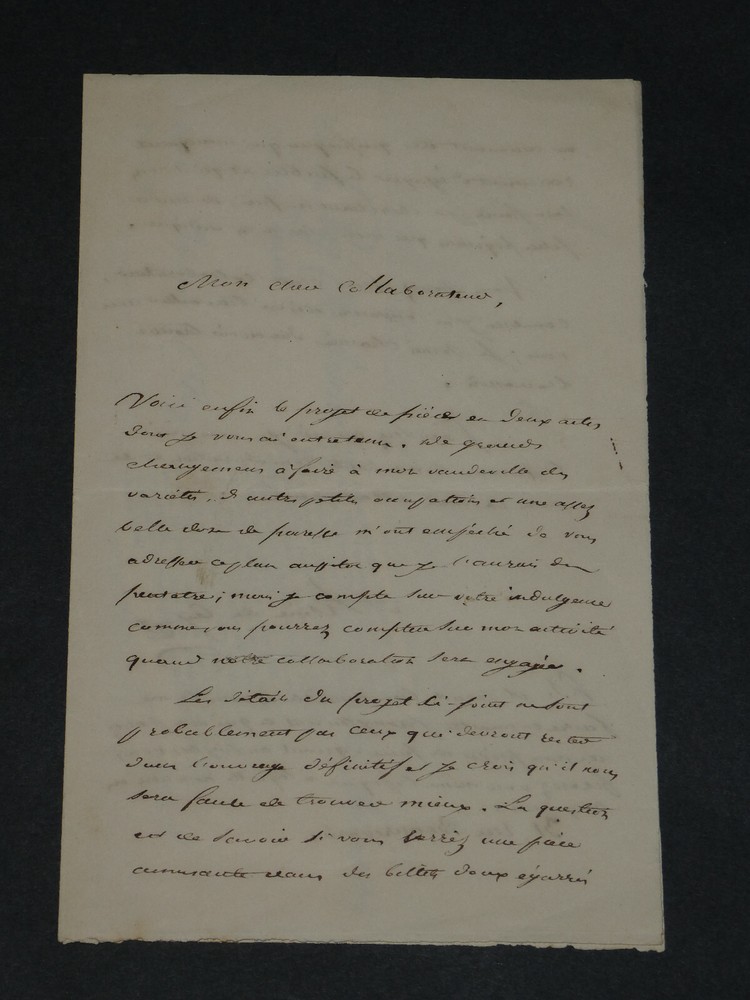 Mon cher collaborateur,
Voici enfin le projet de pièce en deux actes
dont je vous ai entretenu. De grands
changemens à faire à mon vaudeville des
variétés, d'autres petites occupations et une assez
belle dose de paresse m'ont empêché de vous
adresser ce plan aussitôt que je l'aurais du
peutetre ; mais je compte sur votre indulgence
comme vous pourrez compter sur mon activité
quand notre collaboration sera engagée.
Les détails du projet ci-joint ne sont
probablement pas ceux qui devront rester
dans l'ouvrage définitif et je crois qu'il nous
sera facile de trouver mieux. La question
est de savoir si vous verrez une pièce
amusante dans des billets doux égarés